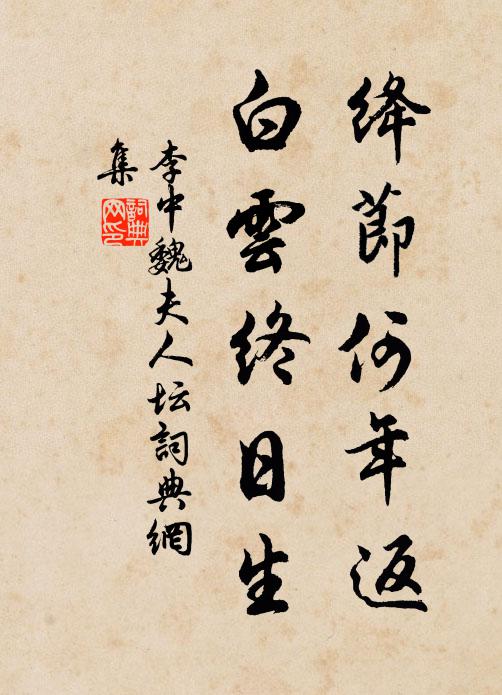 絳節何年返
白雲終日生
李中魏夫人坛詞典網
集
詞典
网印